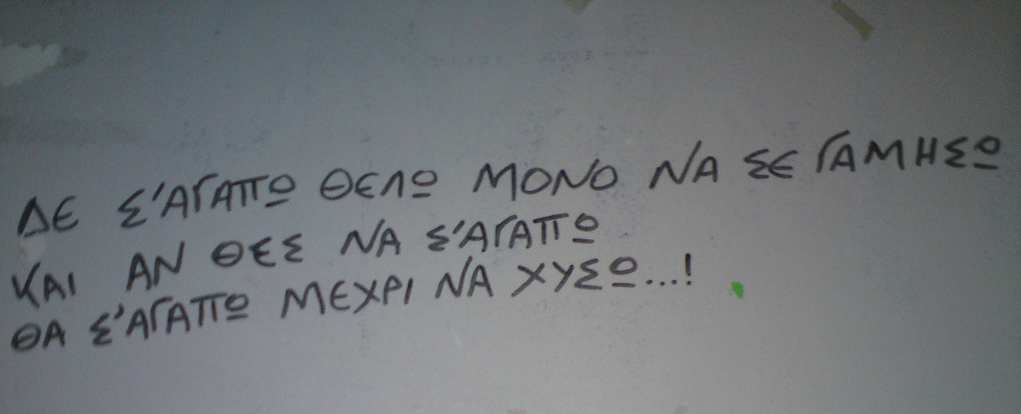 ΔΕ Σ'ΑΓΑΠΩ ΘΕΛΩ ΜΟΝΟ ΝΑ ΣΕ ΓΑΜΗΣΩ
ΚΑΙ ΑΝ ΘΕΣ ΝΑ Σ'ΑΓΑΠΩ
ΘΑ Σ'ΑΓΑΠΩ ΜΕΧΡΙ ΝΑ ΧΥΣΩ...!